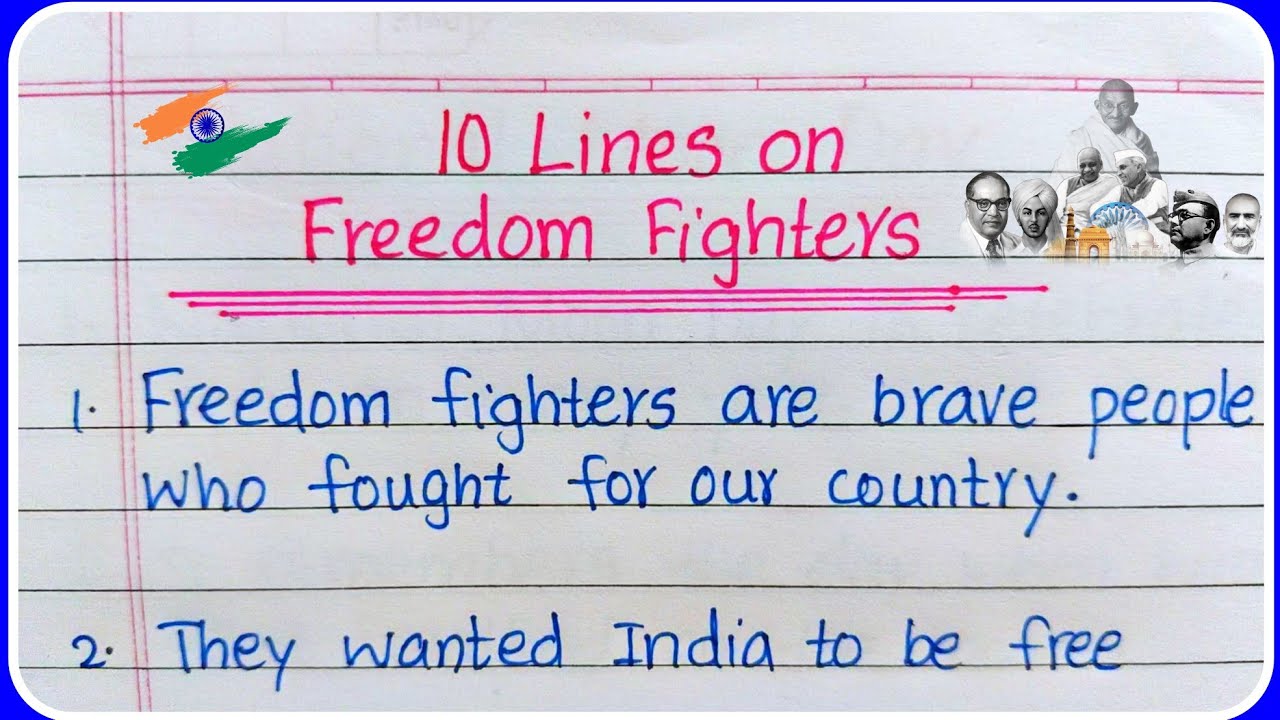 10 Lines on
Freedom Fighters
1. Freedom fighters are brave people
who fought for our country.
2. They wanted India to be free